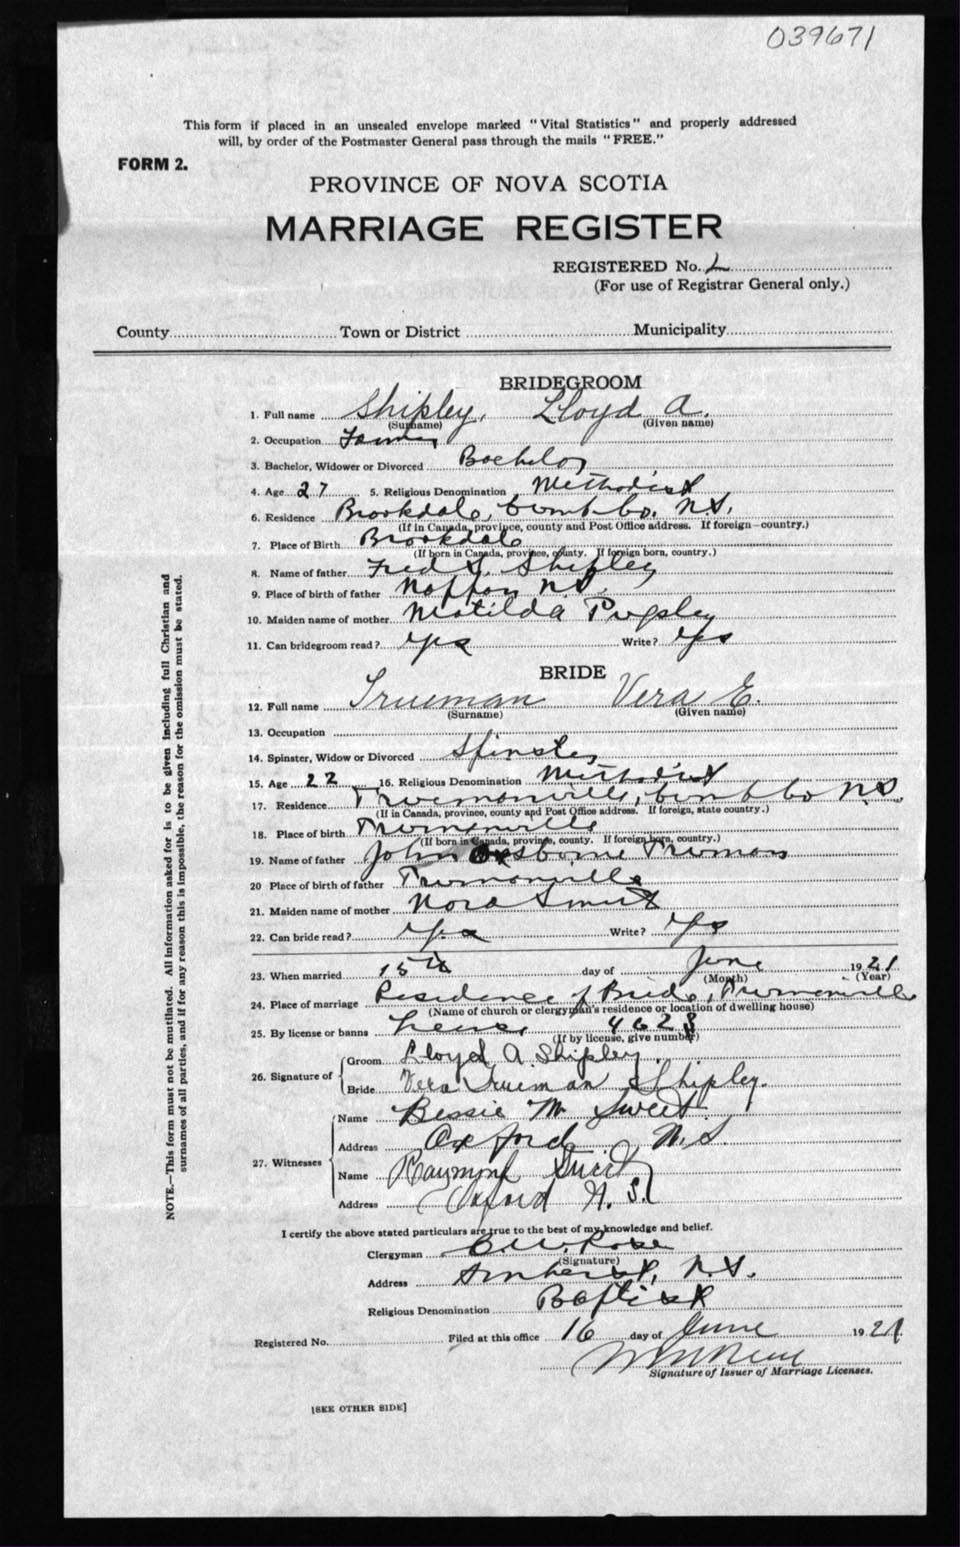 039671
This form if placed in an unsealed envelope marked "Vital Statistics" and properly addressed
will, by order of the Postmaster General pass through the mails "FREE."
FORM 2.
PROVINCE OF NOVA SCOTIA
MARRIAGE REGISTER
REGISTERED No. L
(For use of Registrar General only.)
County Town or District Municipality
BRIDEGROOM
1. Full name Shipley, Lloyd A.
(Surname) (Given name)
2. Occupation Farmer
3. Bachelor, Widower or Divorced Bachelor
4. Age 27 5. Religious Denomination Methodist
6. Residence Brookdale, Cumb Co. N.S.
(If in Canada, province, county and Post Office address. If foreign—country.)
7. Place of Birth Brookdale
(If born in Canada, province, county. If foreign born, country.)
8. Name of father Fred S. Shipley
9. Place of birth of father Nappan N.S.
10. Maiden name of mother Matilda Pugsley
11. Can bridegroom read? Yes Write? Yes
BRIDE
12. Full name Trueman Vera E.
(Surname) (Given name)
13. Occupation
14. Spinster, Widow or Divorced Spinster
15. Age 22 16. Religious Denomination Methodist
17. Residence Truemanville, Cumb Co N.S.
(If in Canada, province, county and Post Office address. If foreign, state country.)
18. Place of birth Truemanville
(If born in Canada, province, county. If foreign born, country.)
19. Name of father John Osborne Trueman
20 Place of birth of father Truemanville
21. Maiden name of mother Nora Smith
22. Can bride read? Yes Write? Yes
23. When married 15th day of June 1921
(Month) (Year)
24. Place of marriage Residence of Bride, Truemanville
(Name of church or clergyman's residence or location of dwelling house)
25. By license or banns License 4628
(If by license, give number)
26. Signature of Groom Lloyd A. Shipley.
Bride Vera Trueman Shipley.
27. Witnesses
Name Bessie M Sweet
Address Oxford N.S
Name Raymond Sweet
Address Oxford N.S.
I certify the above stated particulars are true to the best of my knowledge and belief.
Clergyman Rose
(Signature)
Address Amherst, N.S.
Religious Denomination Baptist
Registered No. Filed at this office 16 day of June 1921
Signature of Issuer of Marriage Licenses.
[SEE OTHER SIDE]
NOTE.—This form must not be mutilated. All information asked for is to be given including full Christian and
surnames of all parties, and if for any reason this is impossible, the reason for the omission must be stated.